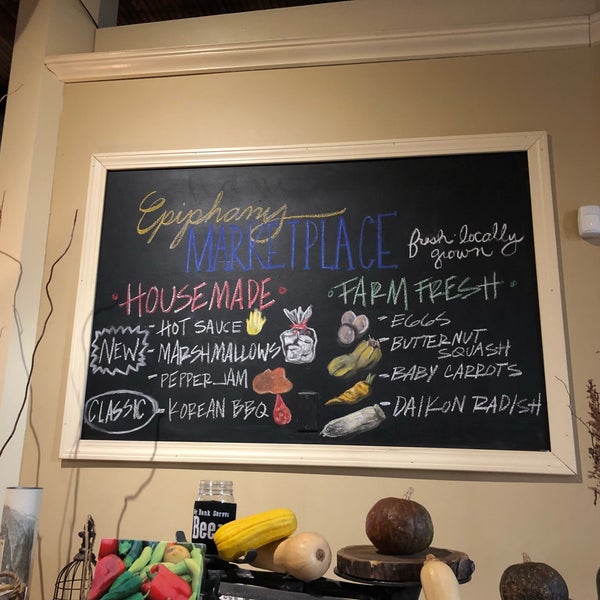 Epiphany
MARKETPLACE
fresh·locally
grown
HOUSEMADE
FARM FRESH
NEW
- HOT SAUCE
- MARSHMALLOWS
- PEPPER JAM
CLASSIC - KOREAN BBQ
- EGGS
- BUTTERNUT
SQUASH
- BABY CARROTS
- DAIKON RADISH
Bank Serves
Beer